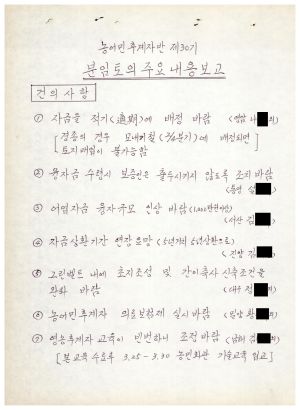 농어민후계자반 제30기
분임토의 주요내용보고
건의사항
① 자금을 적기(適期)에 배정 바람
경종의 경우 모내기철(2/4분기)에 배정되면
토지매입이 불가능함
② 융자금 수령시 보증인은 출두시키지 않도록 조치 바람
③ 어업자금 융자규모 인상 바람
(서산
④ 자금상환기간 연장 요망
⑤ 그린벨트 내에 초지조성 및 간이축사 신축조건을
완화 바람
(대구
⑥ 농어민후계자 의료보험제 실시바람 (밀양
⑦ 영농후계자 교육이 빈번하니 조정 바람 (남해 김
[본 교육 수료후 3.25 - 3.30 농민회관 기술교육 입교]